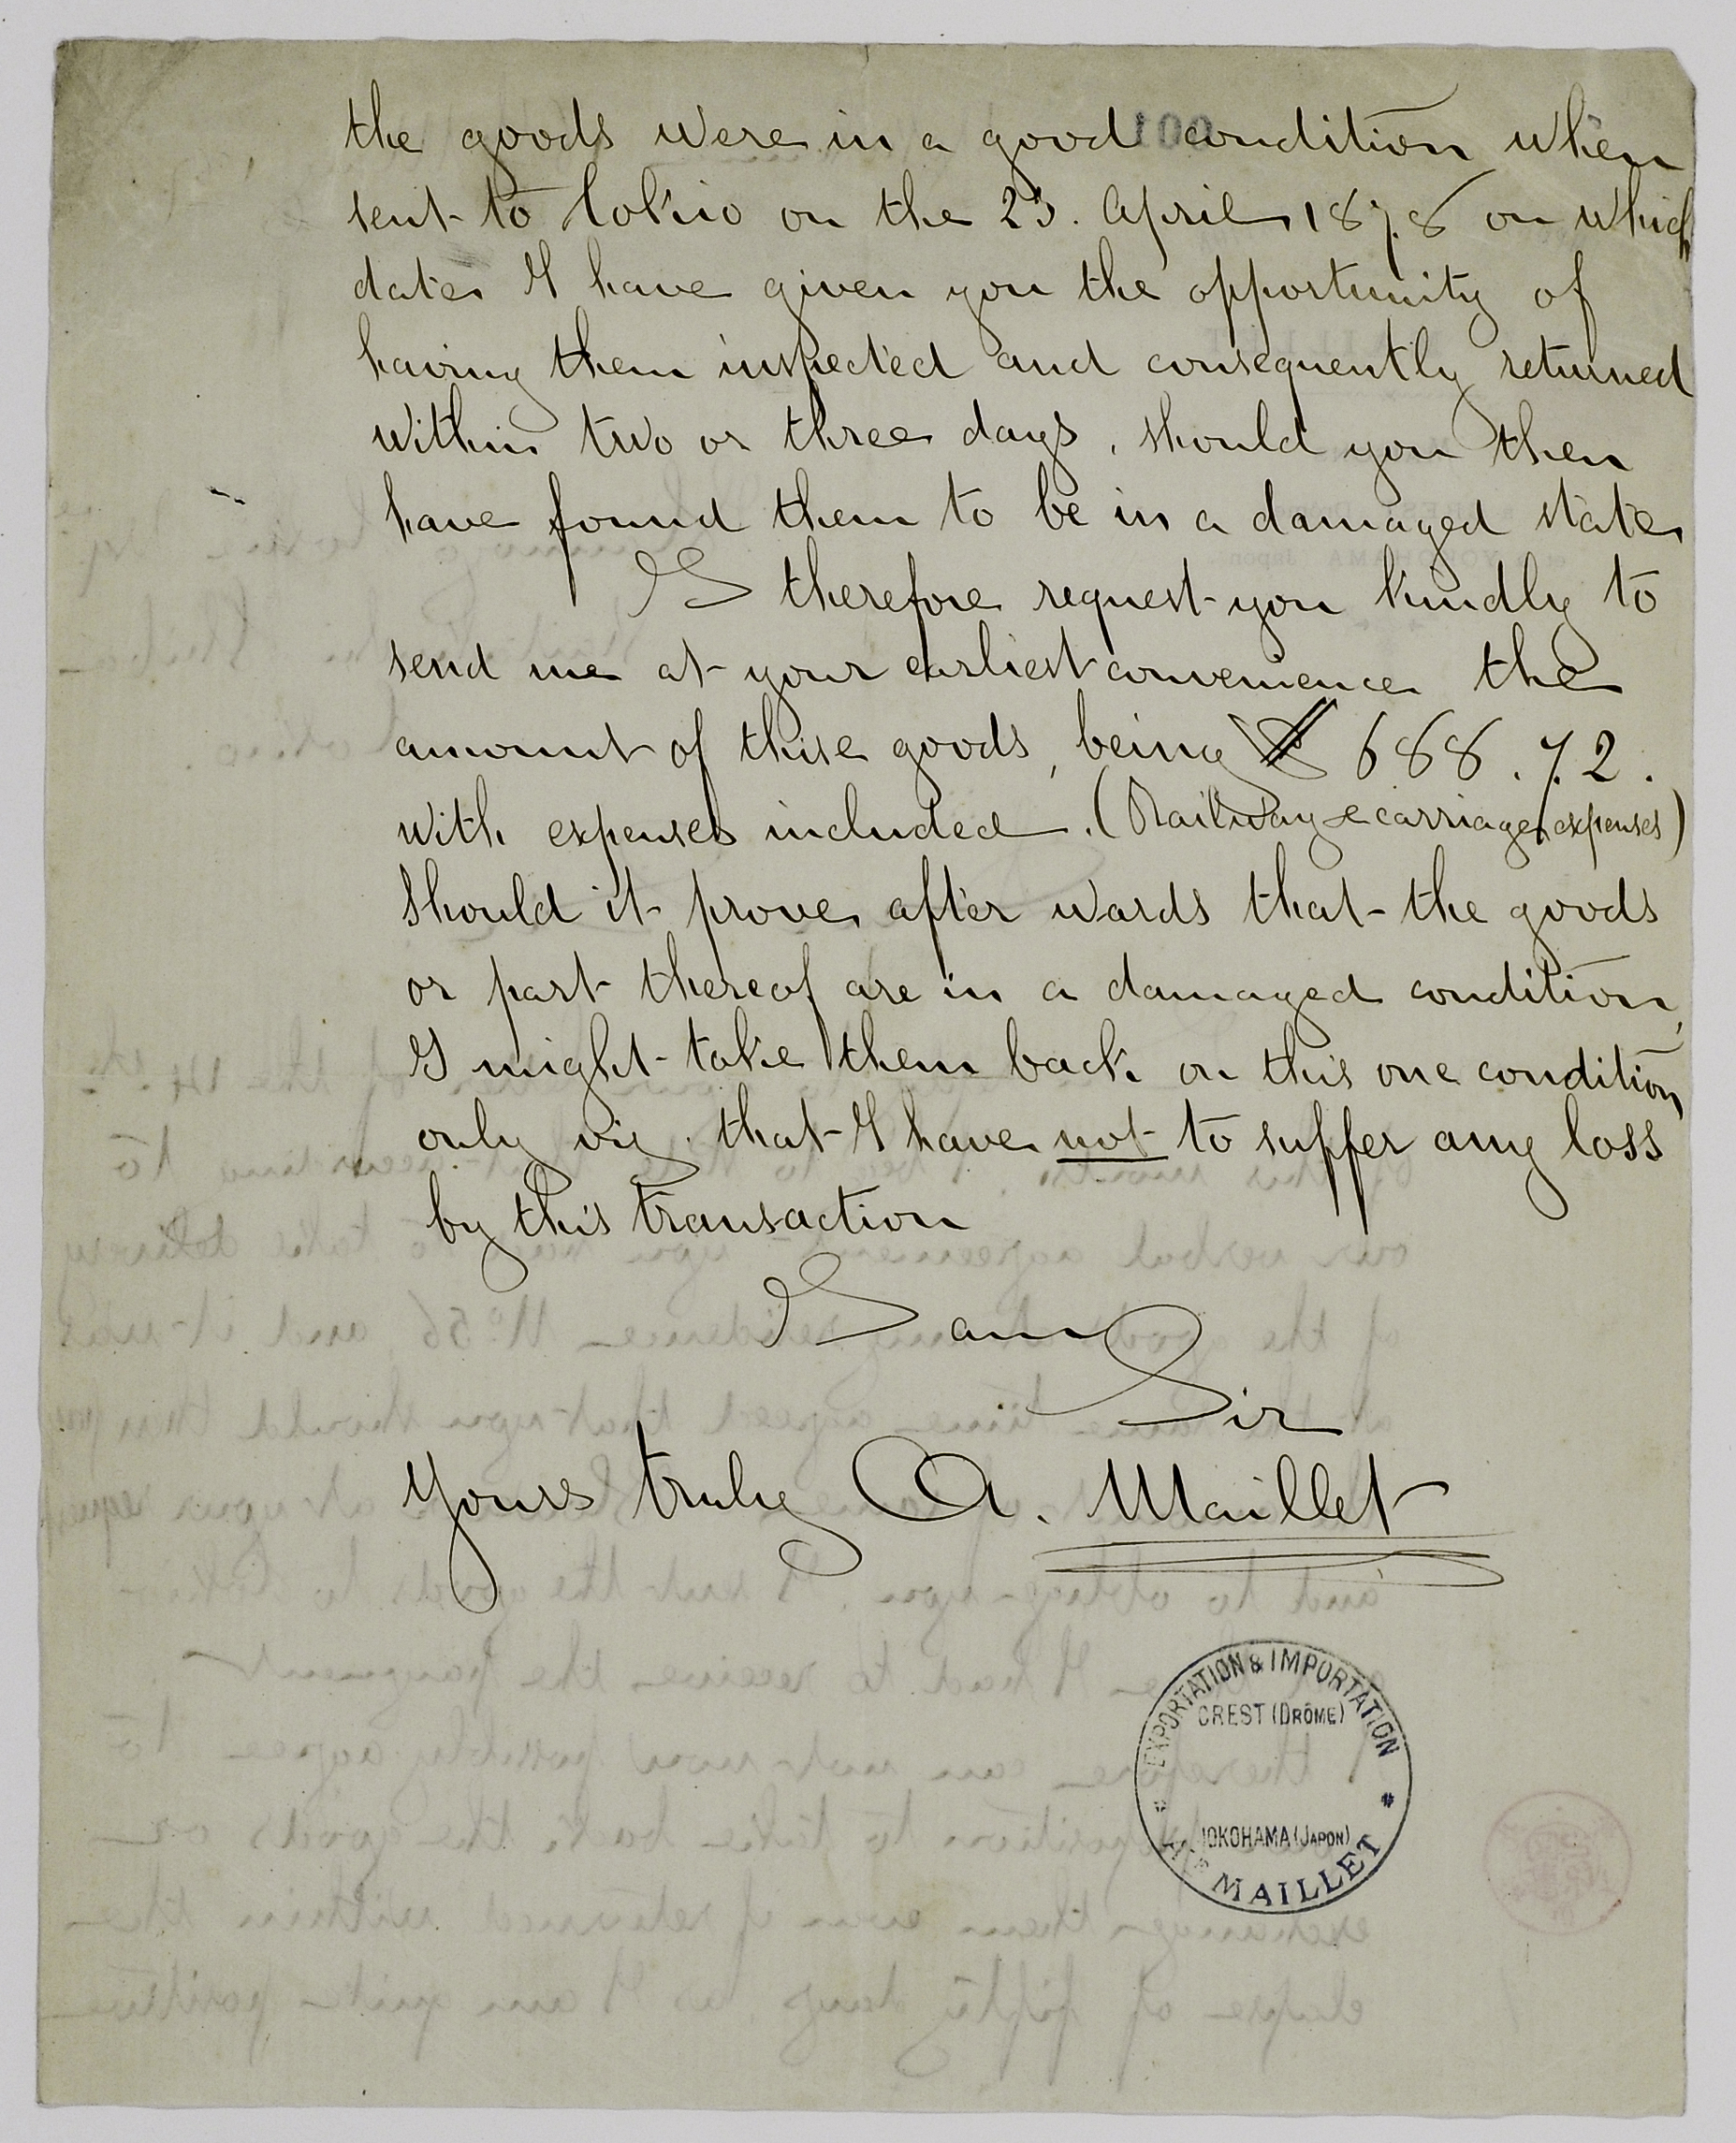 the goods were in a good condition when
sent to Tokio on the 23. April 1878 on which
date I have given you the opportunity of
having them inspected and consequently returned
within two or three days, should you then
have found them to be in a damaged state
I therefore request you kindly to
send me at your earliest convenience the
amount of these goods, being $ 688.72.
with expenses included. (Railway & carriage expenses)
Should it prove after wards that the goods
or part thereof are in a damaged condition,
I might take them back on this one condition
only viz. that I have not to suffer any loss
by this transaction
I am
Sir
Yours truly A. Maillet
EXPORTATION & IMPORTATION
CREST (DRÔME)
YOKOHAMA (JAPON)
MAILLET